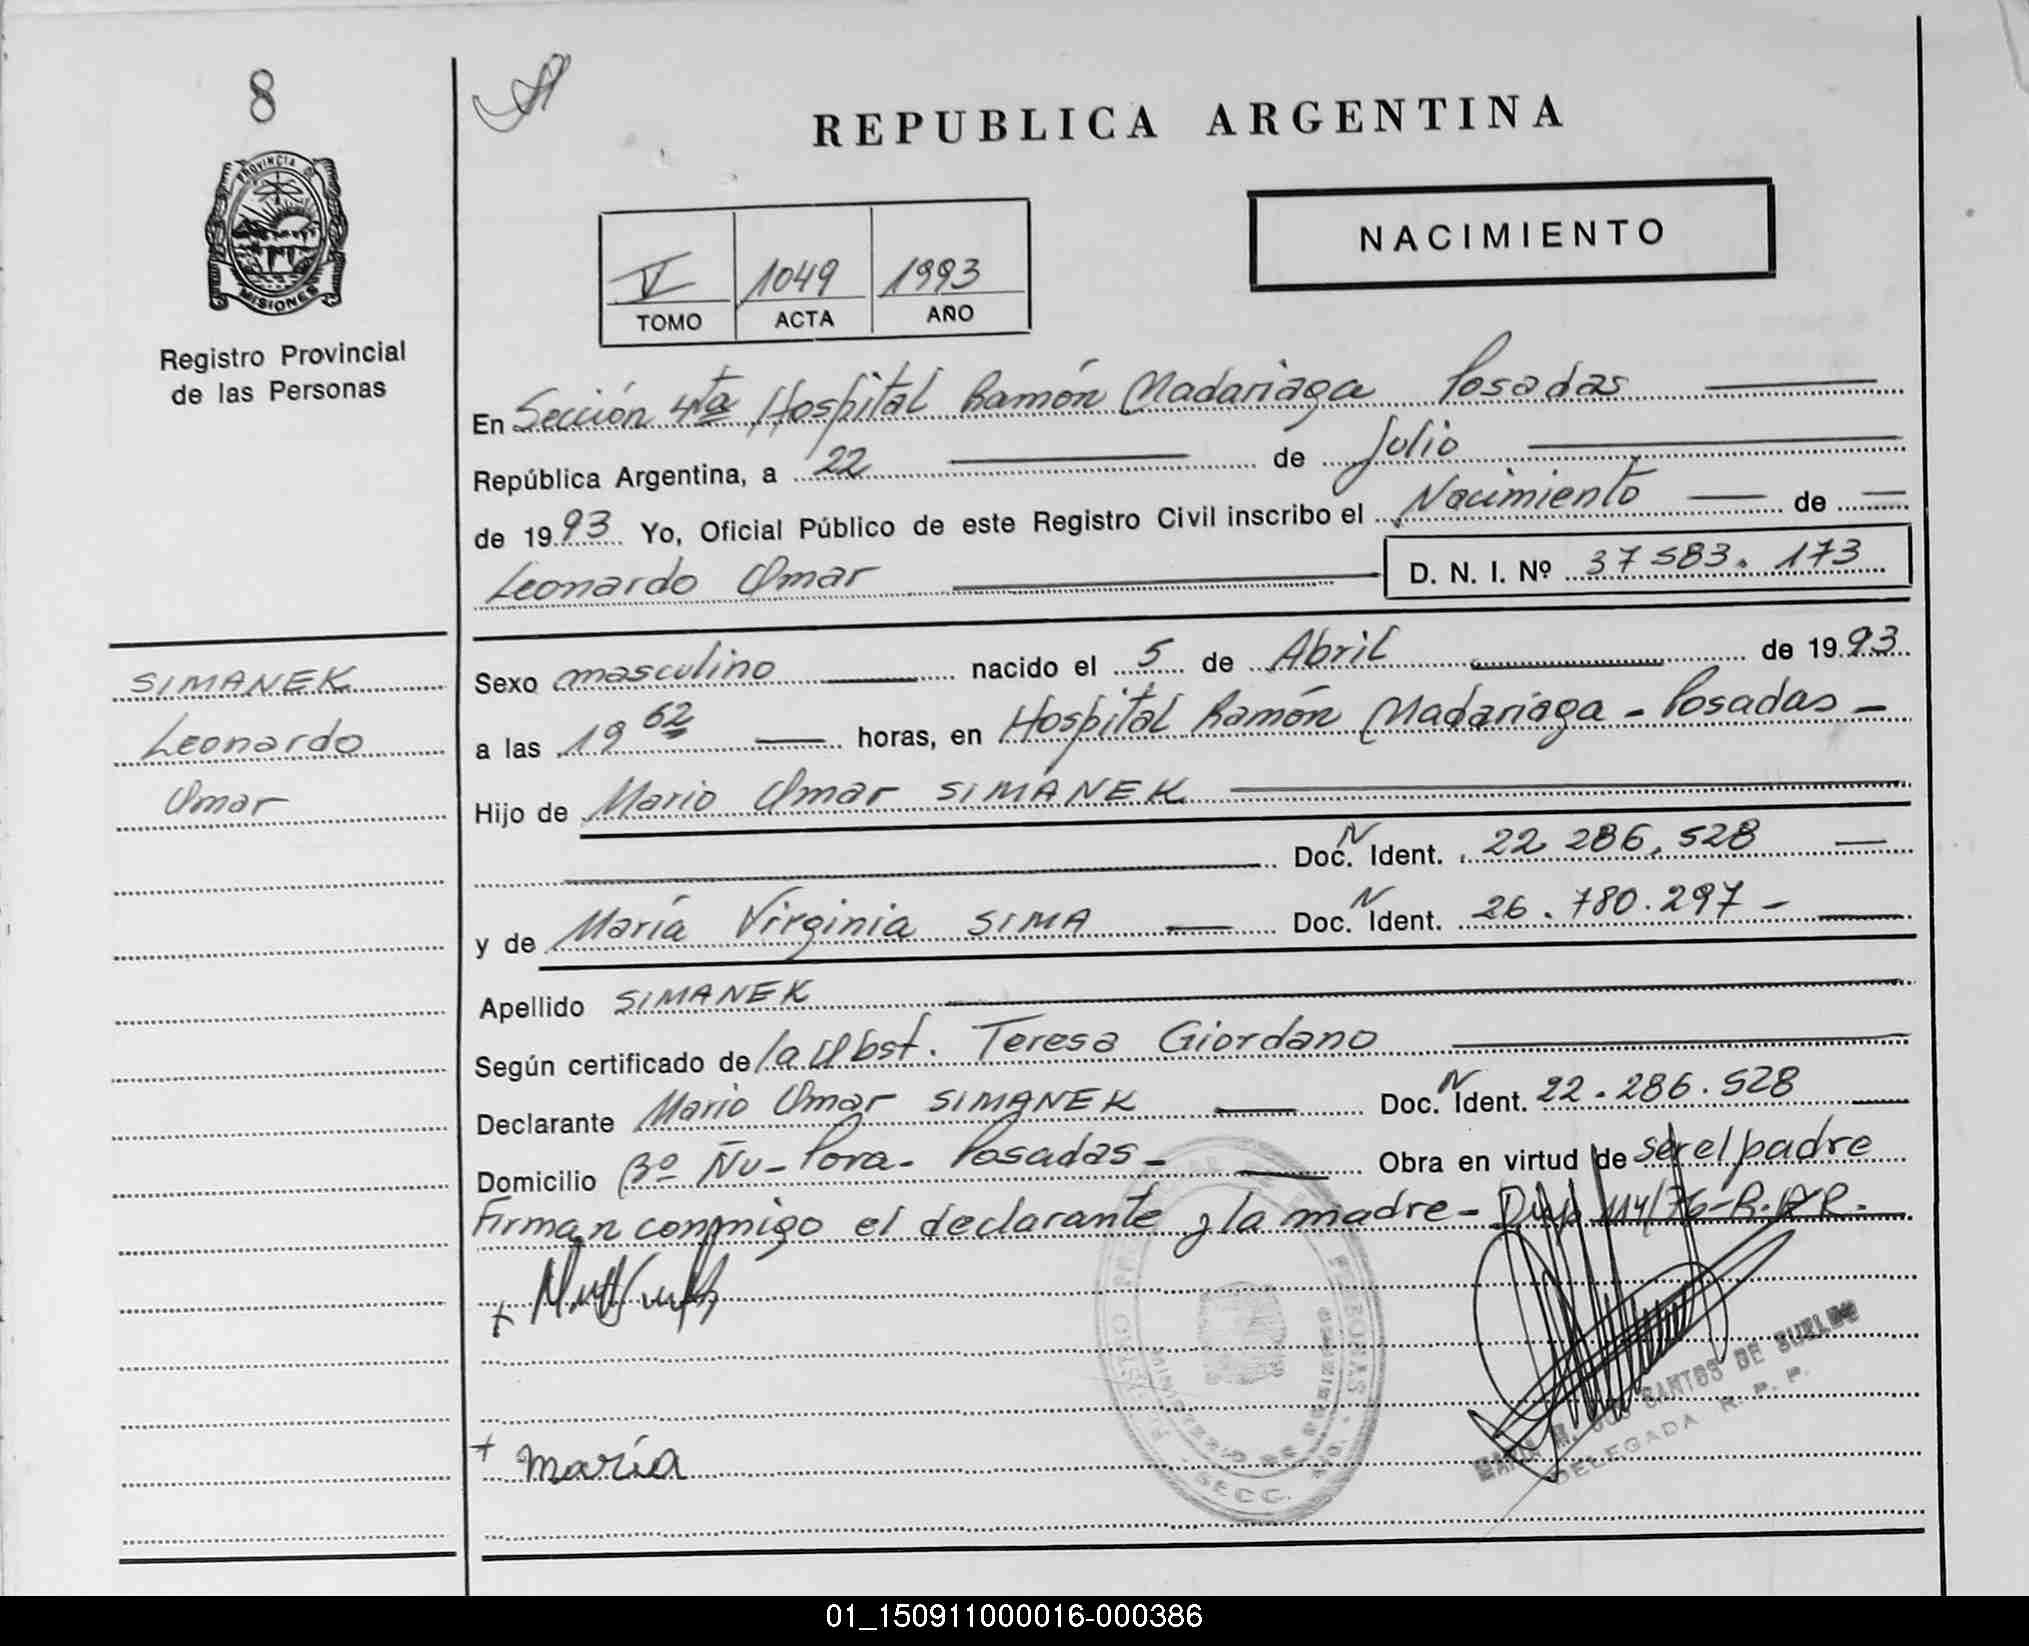 8
PROVINCIA DE
MISIONES
Registro Provincial
de las Personas
SIMANEK
Leonardo
Omar
REPUBLICA ARGENTINA
NACIMIENTO
V 1049 1993
TOMO ACTA AÑO
En Sección 4ta Hospital Ramón Madariaga Posadas
República Argentina, a 22 de Julio
de 1993 Yo, Oficial Público de este Registro Civil inscribo el Nacimiento de
Leonardo Omar D. N. I. Nº 37583.173
Sexo masculino nacido el 5 de Abril de 1993
a las 19 62 horas, en Hospital Ramón Madariaga - Posadas -
Hijo de Mario Omar SIMANEK
Doc. N Ident. 22 286.528
y de María Virginia SIMA Doc. N Ident. 26.780.297 -
Apellido SIMANEK
Según certificado de la Obst. Teresa Giordano
Declarante Mario Omar SIMANEK Doc. N Ident. 22.286.528
Domicilio Bº Ñu-Pora- Posadas- Obra en virtud de ser el padre
Firman conmigo el declarante y la madre - Disp 114/76-R.P.
+
+ María
SANTOS DE
DELEGADA R. P. P.
MINISTERIO DE
PERSONAS
SECC.
01_150911000016-000386